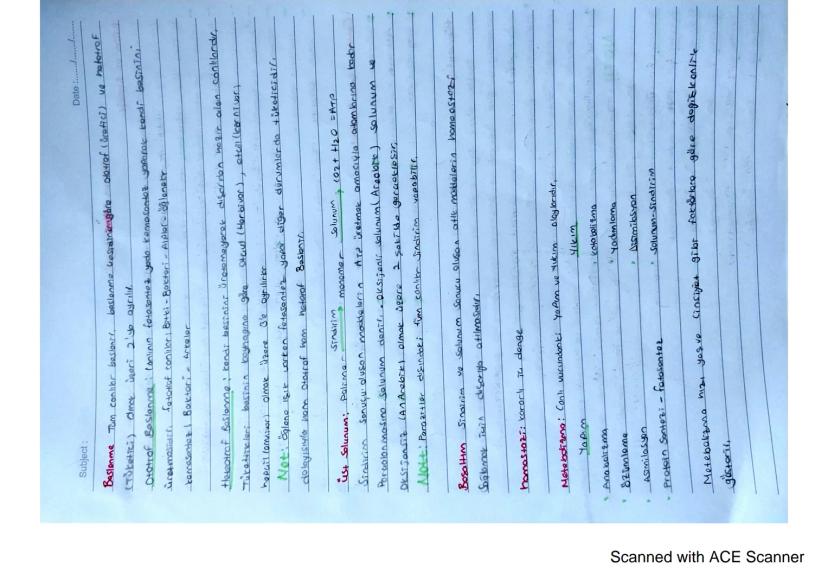 Subject:
Date:....../....../......
Beslenme Tüm canlılar beslenir, beslenme göre ototrof (üretici) ve hetotrof
(Tüketici) olmak üzeri 2'ye ayrılır.
Ototrof Beslenme: Canlının fotosentez yada kemosentez yaparak kendi besinini
üretmesidir. fototrof canlılar; Bitki - Bakteri - Algler - Öglenalar
kemosentez; Bakteri - Arkeler
Heterotrof Beslenme; kendi besinini üretemeyerek dışarıdan hazır alan canlılardır.
Tüketiciler besinin kaynağına göre otçul (Herbivor), etçil (karnivor),
hepçil (omnivor) olmak üzere 3'e ayrılırlar
Not: Öglena ışık varken fotosentez yapar diğer durumlarda tüketicidir.
dolayısıyla hem ototrof hem hetorof Beslenir.
Solunum: Polimer - Sindirim → monomer solunum → CO2 + H2O = ATP
Sindirim sonucu oluşan maddelerin ATP üretmek amacıyla atomlarına kadar
Parçalanmasına Solunum denir. Oksijenli solunum (Aerobik) solunum ve
Oksijensiz (Anaerobik) olmak üzere 2 şekilde gerçekleşir.
Not: Parazitler dışındaki tüm canlılar Sindirim yapabilir.
Boşaltım Sindirim ve solunum sonucu oluşan atık maddelerin homeostazi
Sağlamak için dışarıya atılmasıdır.
homostazi: kararlı iç denge
Metebolizma: Canlı vücudundaki Yapım ve Yıkım olaylarıdır.
Yapım Yıkım
• Anabolizma • katabolizma
• Özümleme • Yadımlama
• Asimilasyon • Disimilasyon
• Protein Sentezi - fotosentez • Solunum - Sindirim
Metebolizma hızı yaş ve Cinsiyet gibi faktörlere göre değişkenlik
gösterir.
Scanned with ACE Scanner